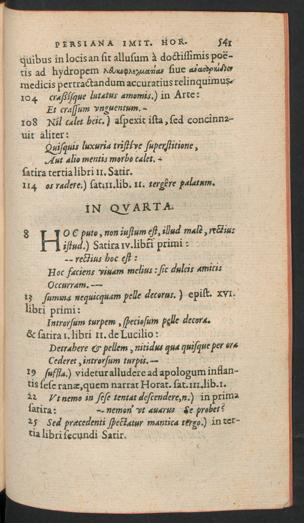 PERSIANA IMIT. HOR. 541
quibus in locis an sit allusum à doctissimis poë-
tis ad hydropem siue
medicis pertractandum accuratius relinquimus.
104 crassisque lutatus amomis.) in Arte:
Et crassum vnguentum. —
108 Nil calet heic.) aspexit ista, sed concinna-
uit aliter:
Quisquis luxuria tristive superstitione,
Aut alio mentis morbo calet. -
satira tertia libri II. Satir.
114 os radere.) sat.III.lib. II. tergêre palatum.
IN QVARTA.
8 HOC puto, non iustum est, illud malè, rectius
istud.) Satira IV. libri primi:
-- rectius hoc est:
Hoc faciens viuam melius: sic dulcis amicis
Occurram. —
13 summa nequicquam pelle decorus.) epist. XVI.
libri primi:
Introrsum turpem, speciosum pelle decora.
& satira I. libri II. de Lucilio:
Detrahere & pellem, nitidus qua quisque per ora
Cederet, introrsum turpis. —
19 sufsta.) videtur alludere ad apologum inflan-
tis sese ranæ, quem narrat Horat. sat.III.lib.I.
22 Vt nemo in sese tentat descendere, n.) in prima
satira: — nemon' vt auarus Se probet?
25 Sed præcedenti spectatur mantica tergo.) in ter-
tia libri secundi Satir.